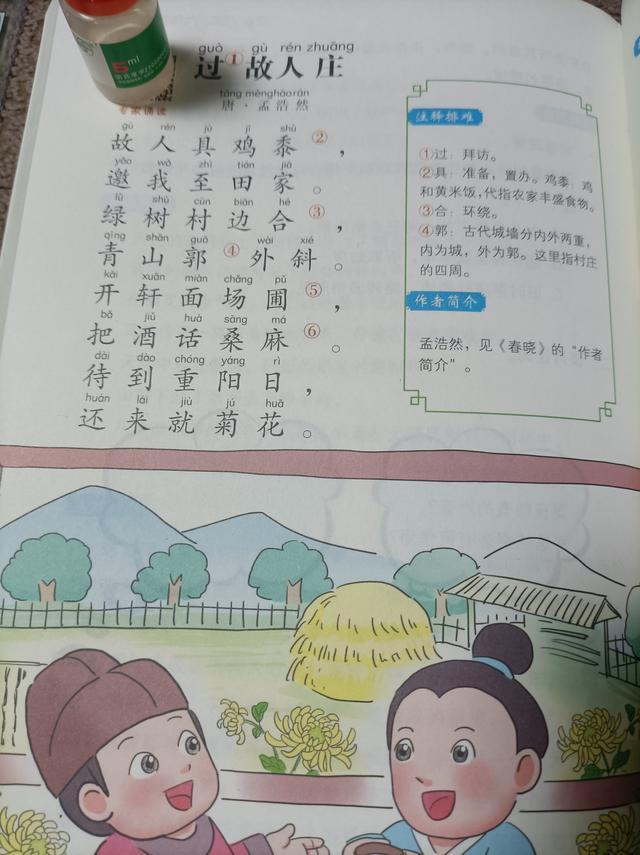 5ml
guò gù rén zhuāng
过①故人庄
táng mènghàorán
唐·孟浩然
专家诵读
gù rén jù jī shǔ
故人具鸡黍②，
yāo wǒ zhì tián jiā
邀我至田家。
lǜ shù cūn biān hé
绿树村边合③，
qīng shān guō wài xié
青山郭④外斜。
kāi xuān miàn chǎng pǔ
开轩面场圃⑤，
bǎ jiǔ huà sāng má
把酒话桑麻⑥。
dài dào chóng yáng rì
待到重阳日，
huán lái jiù jú huā
还来就菊花。
注释排难
①过：拜访。
②具：准备，置办。鸡黍：鸡
和黄米饭，代指农家丰盛食物。
③合：环绕。
④郭：古代城墙分内外两重，
内为城，外为郭。这里指村庄
的四周。
作者简介
孟浩然，见《春晓》的“作者
简介”。